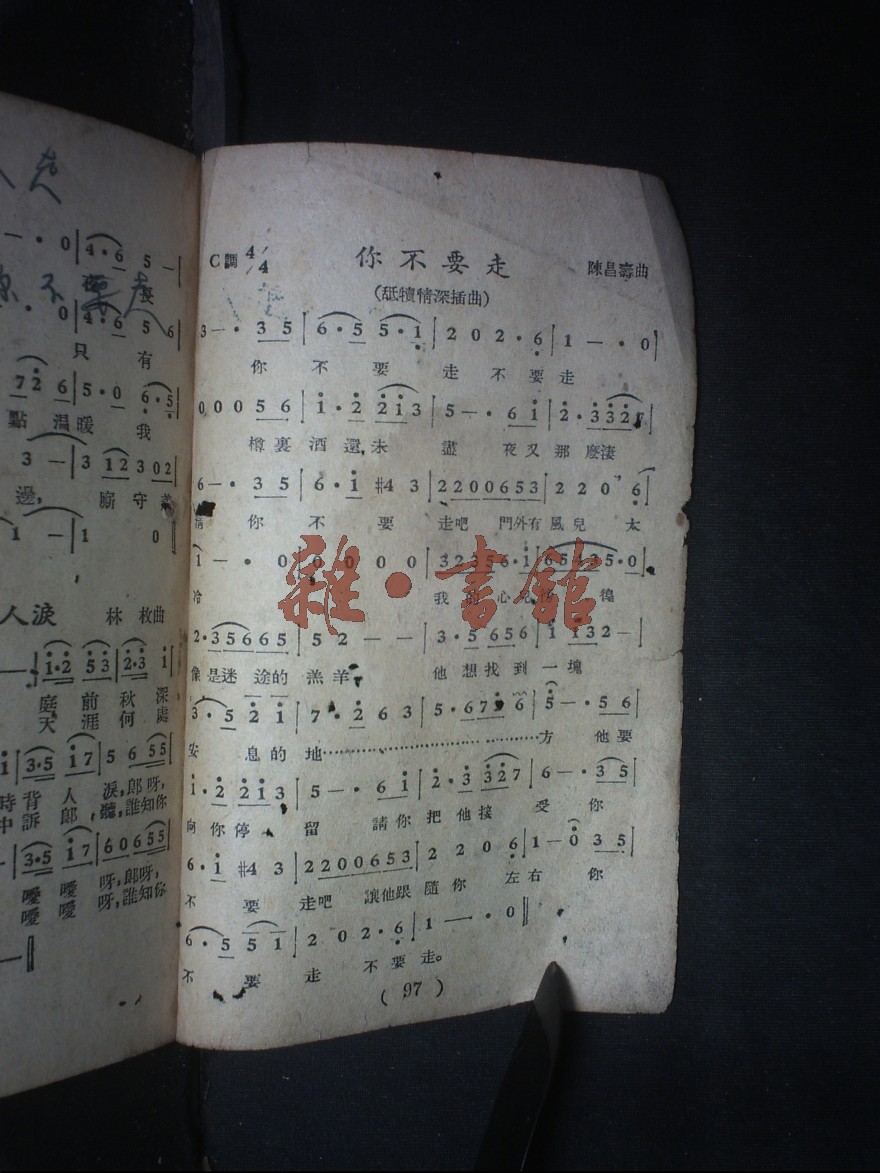 走
你不要走
只有
點溫暖 我
邊, 廝守着
人淚 林枚曲
庭前秋深
天涯何處
時背人淚, 郎呀,
中訴郎聽, 誰知你
噯噯呀, 郎呀,
噯噯呀, 誰知你
C調 4/4 你不要走 陳昌壽曲
(舐犢情深插曲)
3 — · 3 5 | 6 · 5 5 · 1 | 2 0 2 · 6 | 1 — · 0 |
你不要走不要走
0 0 0 5 6 | 1 · 2 2 1 3 | 5 — · 6 1 | 2 · 3 3 2 7 |
樽裏酒還未盡 夜又那麽淒
6 — · 3 5 | 6 · 1 #4 3 | 2 2 0 0 6 5 3 | 2 2 0 6 |
情 你不要走吧 門外有風兒太
1 — · 0 | 0 0 0 0 0 | 3 2 3 5 6 · 1 | 6 5 4 3 5 · 0 |
冷 我的心兒徬徨
2 · 3 5 6 6 5 | 5 2 — — | 3 · 5 6 5 6 | 1 1 3 2 — |
像是迷途的羔羊 他想找到一塊
3 · 5 2 1 | 7 · 2 6 3 | 5 · 6 7 6 | 5 — · 5 6 |
安息的地⋯⋯⋯⋯⋯方 他要
1 · 2 2 1 3 | 5 — · 6 1 | 2 · 3 3 2 7 | 6 — · 3 5 |
向你停留 請你把他接受 你
6 · 1 #4 3 | 2 2 0 0 6 5 3 | 2 2 0 6 | 1 — 0 3 5 |
不要走吧 讓他跟隨你左右 你
6 · 5 5 1 | 2 0 2 · 6 | 1 — · 0 ||
不要走不要走。
( 97 )
雜·書館